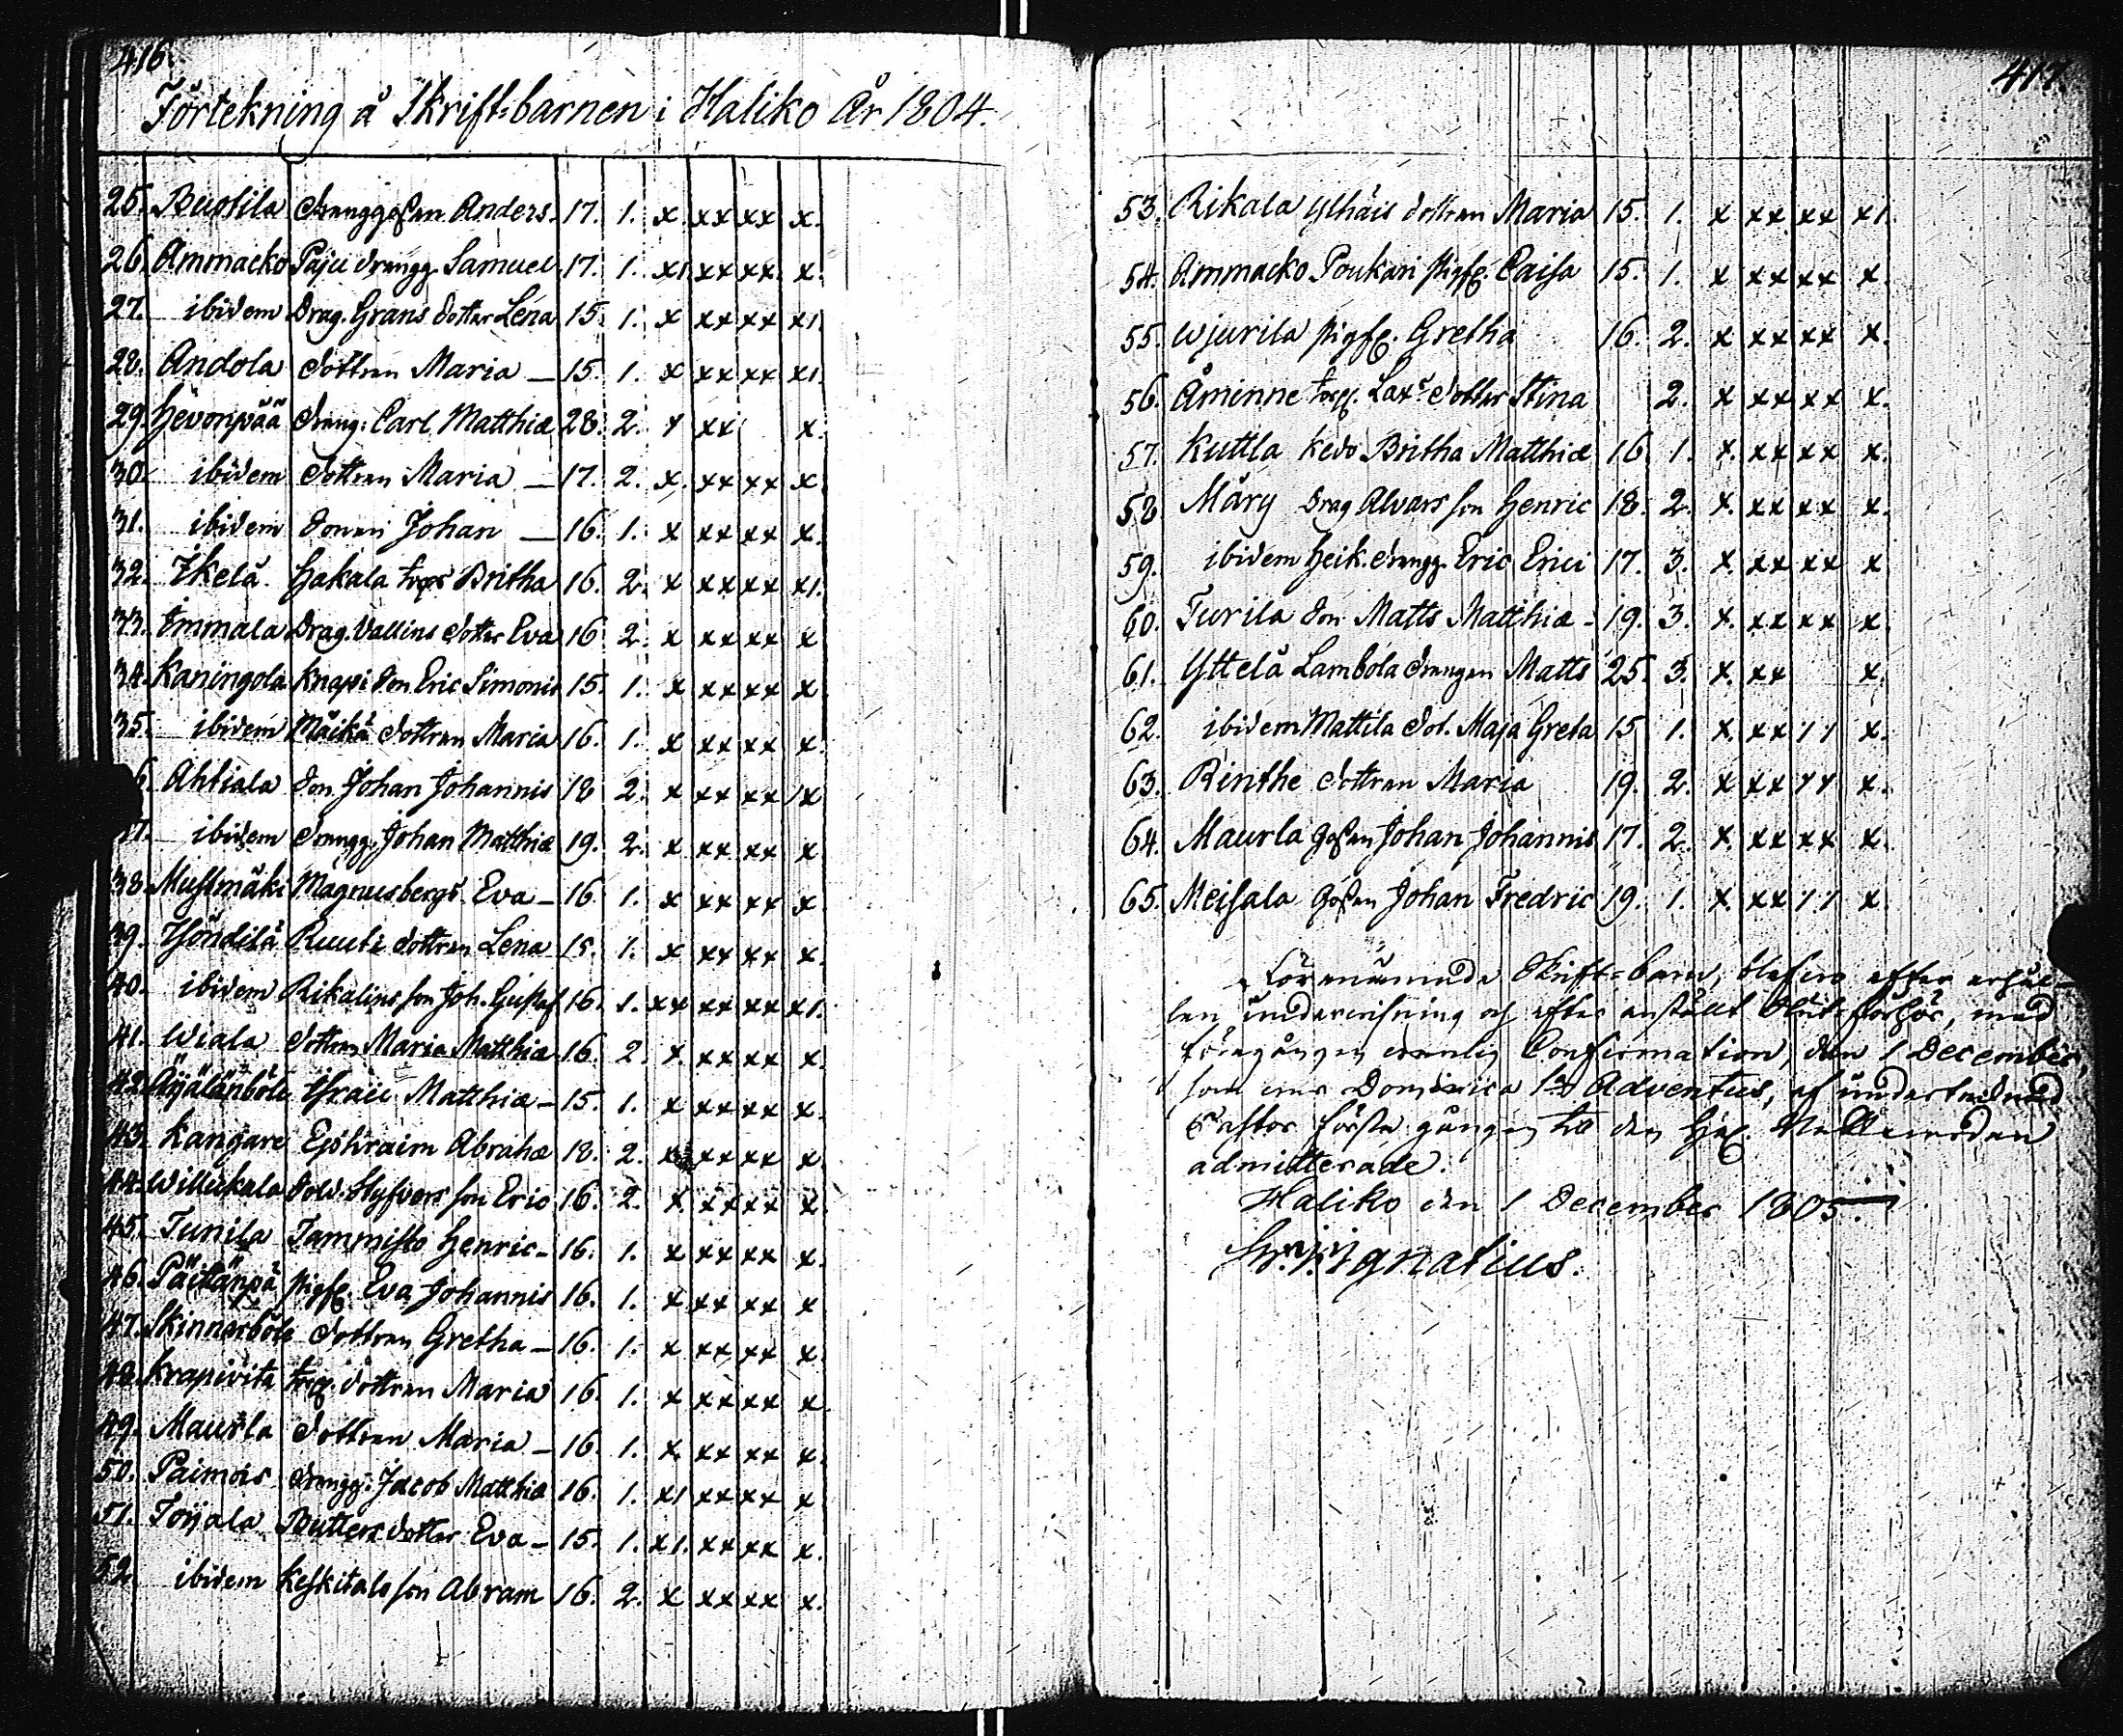 416.
Förtekning å Skrift-barnen i Haliko År 1804.
25. Buotila Drenggåßen Anders. 17. 1. x. xx xx x.
26. Ammacko Paju drengg. Samuel 17. 1. x1 xx xx. x.
27. ibidem Drag. Grans dotter Lena 15. 1. x xx xx x1
28. Andola dottren Maria — 15. 1. x xx xx x1.
29. Hevonpää dreng: Carl Matthiæ 28. 2. x xx x.
30. ibidem dottren Maria — 17. 2. x. xx xx x
31. ibidem Johan — 16. 1. x xx xx x.
32. Ikelä Hakala Britha 16. 2. x xx xx x1.
33. Immala Drag. Vallins dotter Eva 16 2. x xx xx x
34. Kaningola Knapi Son Eric Simonis 15. 1. x xx xx x
35. ibidem Mäikä dottren Maria 16. 1. x xx xx x.
6. Ahtiala Son Johan Johannis 18 2. x xx xx x
ibidem drengg. Johan Matthiæ 19. 2. x xx xx x
38. Mustmäki Magnusbergs Eva — 16. 1. x xx xx x
39. Ruuti dottren Lena 15. 1. x xx xx x.
40. ibidem Rikalins son Joh. Gustaf 16. 1. xx xx xx x1.
41. Wiala dottren Maria Matthiæ 16. 2. x. xx xx x.
42. Matthiæ — 15. 1. x xx xx x.
43. Kangare Ephraim Abrahæ 18. 2. xx xx x.
44. Willukala Sold. son Eric 16. 2. x xx xx x.
45. Tunila Tammisto Henric — 16. 1. x xx xx x.
46. pigfl. Eva Johannis 16. 1. x xx xx x
47. Skinnarböle dottren Gretha — 16. 1. x xx xx x.
48. Krapivita dottren Maria 16. 1. x xx xx x.
49. Maurla dottren Maria — 16. 1. x xx xx x.
50. Paimois drengg: Jacob Matthiæ 16. 1. x1 xx xx x
51. Toijala Butters dotter Eva — 15. 1. x1. xx xx x.
52. ibidem Keskitalo son Abram 16. 2. x xx xx x.
417.
53. Rikala Ylhäis dottren Maria 15. 1. x xx xx x1.
54. Ammacko Poukari pigfl. Caisa 15. 1. x xx xx x.
55. Wjurila pigfl. Gretha 16. 2. x xx xx x.
56. Åminne Lax dotter Stina 2. x xx xx x.
57. Kuttla Kedo Britha Matthiæ 16. 1. x. xx xx x.
58 Märy Drag Alvars son Henric 18. 2. x. xx xx x.
59. ibidem Heik. drengg. Eric Erici 17. 3. x. xx xx x
60. Turila Son Matts Matthiæ - 19. 3. x. xx xx x.
61. Yttelä Lambola drengen Matts 25. 3. x. xx x.
62. ibidem Mattila dot. Maja Greta 15 1. x. xx 11 x.
63. Rinthe dottren Maria 19. 2. x xx xx x.
64. Maurla Goßen Johan Johannis 17. 2. x xx xx x.
65. Meisala Goßen Johan Fredric 19. 1. x. xx 11 x.
Förenämnde Skrift-barn, blefvo efter erhål-
len undervisning och efter anstäldt Slut-förhör, med
föregången Confirmation, den 1 December,
som var Dominica 1:a Adventus, af undertecknad
Pastor första gången till den Hel. Nattvarden
admitterade.
Haliko den 1 December 1805.
Ignatius.